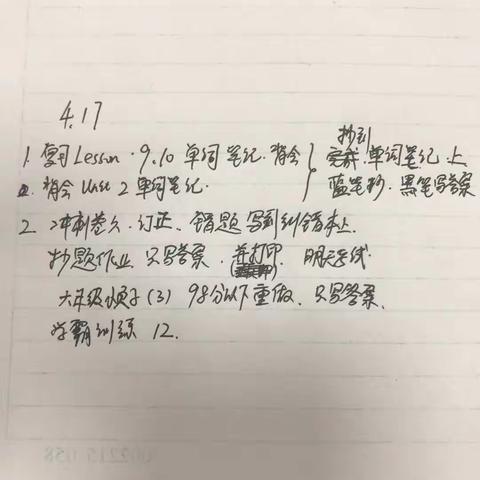 4.17
1. 复习 Lesson · 9.10 单词笔记. 背会 { 抄到 单词笔记上
背会 Unit 2 单词笔记. 蓝笔抄. 黑笔写答案
2. 冲刺卷九. 订正. 错题写到纠错本上.
抄题作业. 只写答案. 并打印. 明天
六年级 (3) 98分以下重做. 只写答案.
学霸训练 12.
002215 058